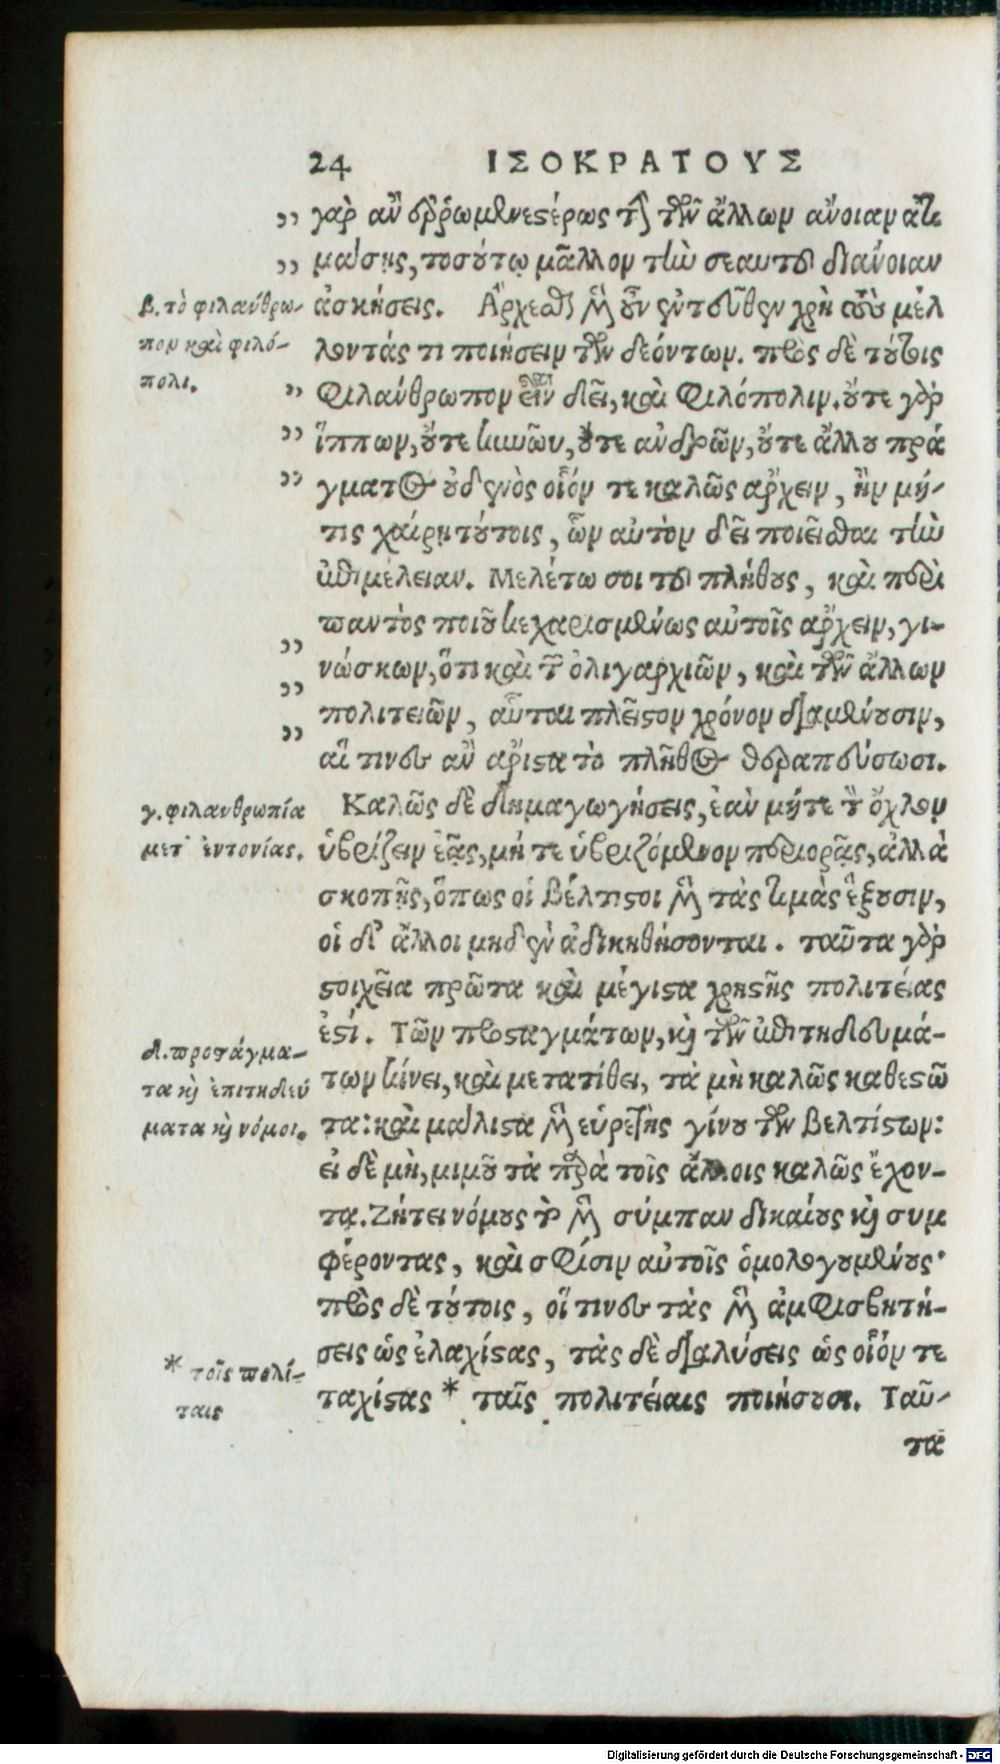 24 ΙΣΟΚΡΑΤΟΥΣ
„ γὰρ ἂν ἐῤῥωμενεστέρως τὴν τῶν ἄλλων ἄνοιαν ἀτι
„ μάσῃς, τοσούτῳ μᾶλλον τὴν σεαυτοῦ διάνοιαν
ἀσκήσεις. Ἄρχεσθαι μὲν οὖν ἐντεῦθεν χρὴ τοὺς μέλ
λοντάς τι ποιήσειν τῶν δεόντων. πρὸς δὲ τούτοις
„ φιλάνθρωπον εἶναι δεῖ, καὶ φιλόπολιν. οὔτε γὰρ
„ ἵππων, οὔτε κυνῶν, οὔτε ἀνδρῶν, οὔτε ἄλλου πρά
„ γματος οὐδενὸς οἷόν τε καλῶς ἄρχειν, ἢν μή-
τις χαίρῃ τούτοις, ὧν αὐτὸν δεῖ ποιεῖσθαι τὴν
ἐπιμέλειαν. Μελέτω σοι τοῦ πλήθους, καὶ περὶ
παντὸς ποιοῦ κεχαρισμένως αὐτοῖς ἄρχειν, γι-
„ νώσκων, ὅτι καὶ τῶν ὀλιγαρχιῶν, καὶ τῶν ἄλλων
„ πολιτειῶν, αὗται πλεῖστον χρόνον διαμένουσιν,
„ αἵ τινες ἂν ἄριστα τὸ πλῆθος θεραπεύσωσι.
Καλῶς δὲ δημαγωγήσεις, ἐὰν μήτε τὸν ὄχλον
ὑβρίζειν ἐᾷς, μήτε ὑβριζόμενον περιορᾷς, ἀλλὰ
σκοπῇς, ὅπως οἱ βέλτιστοι μὲν τὰς τιμὰς ἕξουσιν,
οἱ δ' ἄλλοι μηδὲν ἀδικηθήσονται. ταῦτα γὰρ
στοιχεῖα πρῶτα καὶ μέγιστα χρηστῆς πολιτείας
ἐστί. Τῶν προσταγμάτων, καὶ τῶν ἐπιτηδευμά-
των κίνει, καὶ μετατίθει, τὰ μὴ καλῶς καθεστῶ
τα: καὶ μάλιστα μὲν εὑρετὴς γίνου τῶν βελτίστων:
εἰ δὲ μὴ, μιμοῦ τὰ παρὰ τοῖς ἄλλοις καλῶς ἔχον-
τα. Ζήτει νόμους τὸ μὲν σύμπαν δικαίους καὶ συμ
φέροντας, καὶ σφίσιν αὐτοῖς ὁμολογουμένους·
πρὸς δὲ τούτοις, οἵ τινες τὰς μὲν ἀμφισβητή-
σεις ὡς ἐλαχίστας, τὰς δὲ διαλύσεις ὡς οἷόν τε
ταχίστας * ταῖς πολιτείαις ποιήσουσι. Ταῦ-
τα
β. τὸ φιλάνθρω-
πον καὶ φιλό-
πολι.
γ. φιλανθρωπία
μετ' ἐντονίας.
δ. προστάγμα-
τα καὶ ἐπιτηδεύ
ματα καὶ νόμοι.
* τοῖς πολί-
ταις
Digitalisierung gefördert durch die Deutsche Forschungsgemeinschaft - DFG